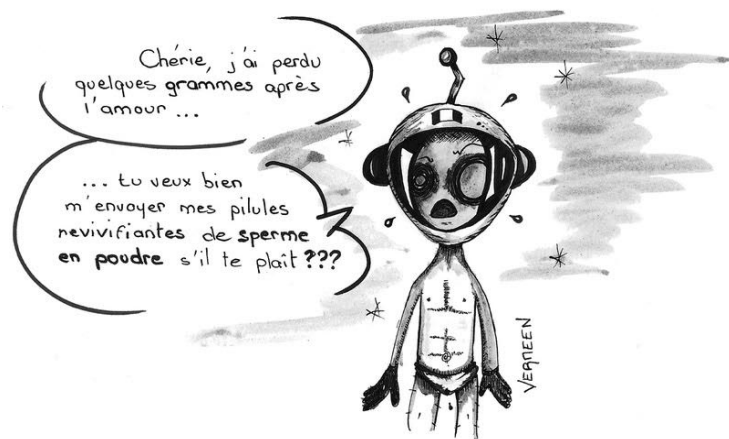 Chérie, j'ai perdu
quelques grammes après
l'amour ...
... tu veux bien
m'envoyer mes pilules
revivifiantes de sperme
en poudre s'il te plaît ???
VERMEEN